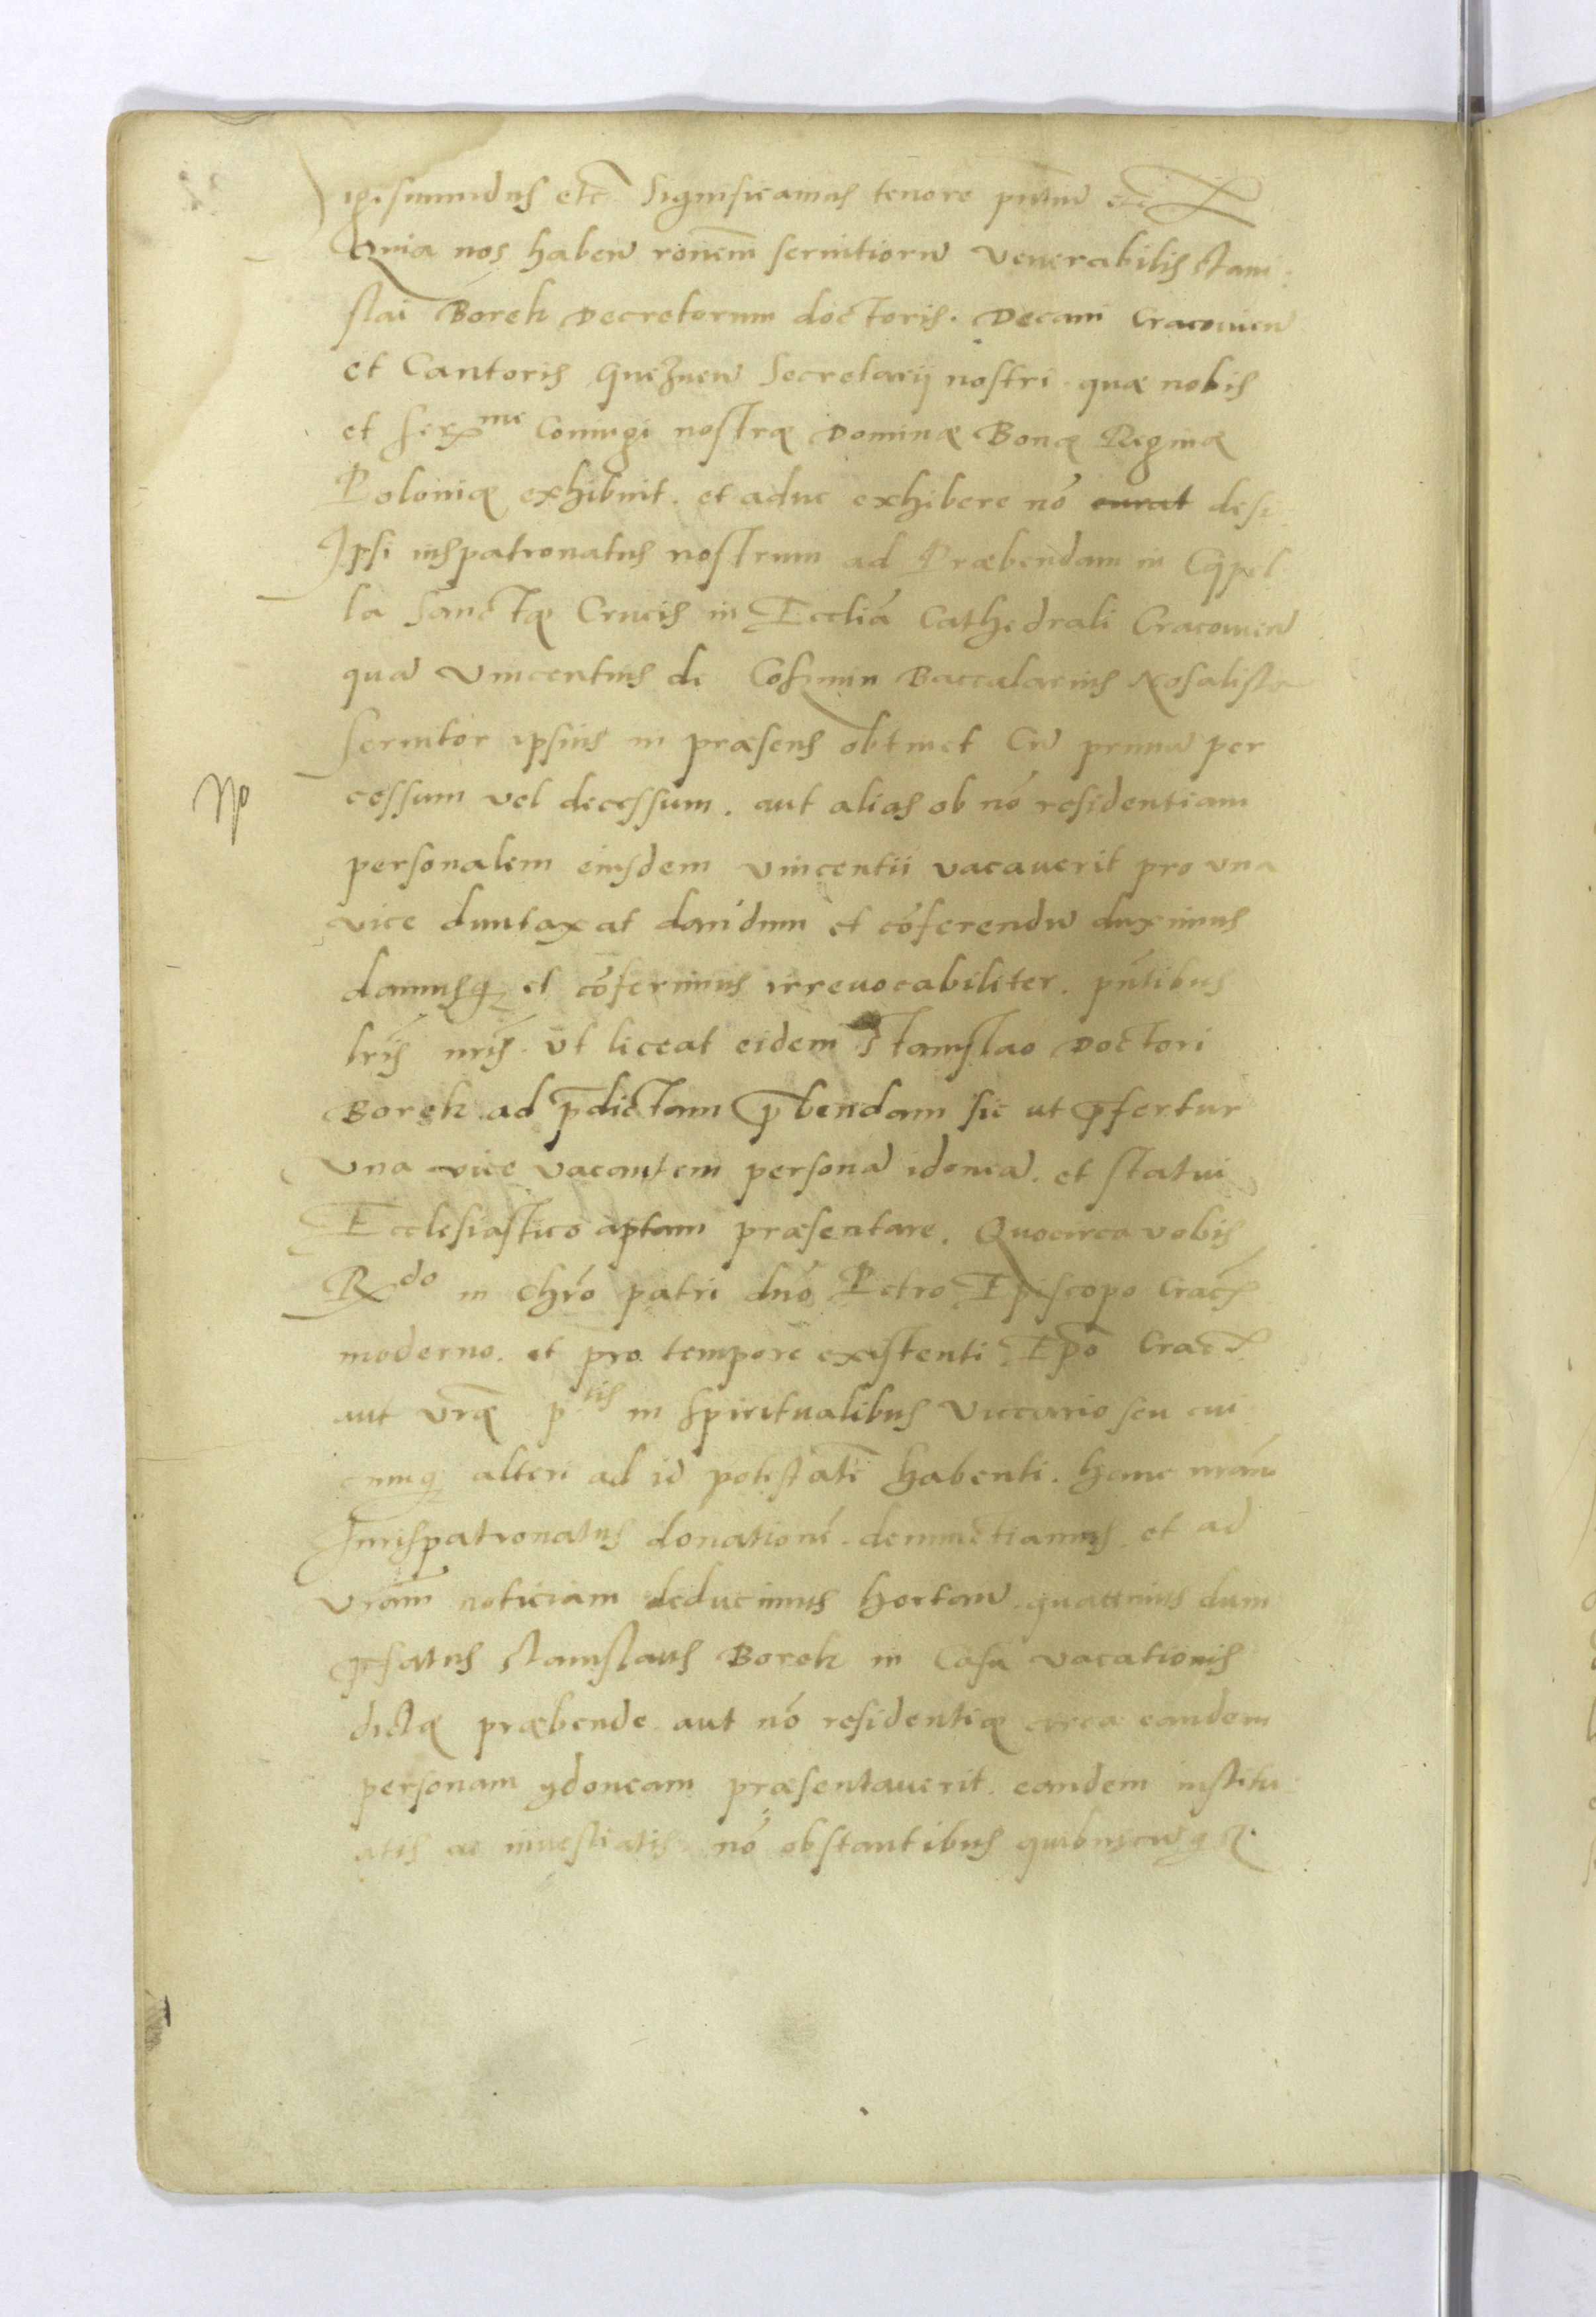 Sigismundus etc̄ Significamus tenore pn̄tiū etc̄
Quia nos haben̄ ron̄em seruitiorū Venerabilis Stani:
slai Borek Decretorum doctoris. Decani Cracouien̄
et Cantoris Gneznen̄ Secretarij nostri quæ nobis
et Serx^me Coniugi nostrę Dominę Bonę Reginę
Polonię exhibuit. et aduc exhibere nō curat desi:
Ipsi iuspatronatus nostrum ad Præbendam in Capel
la Sanctę Crucis in Ecclīa Cathedrali Cracouien̄
quā Vincentius de Baccalarius
Seruitor ipsius in præsens obtinet Cū primū per
No cessum vel decessum. aut alias ob nō residentiam
personalem eiusdem Vincentii vacauerit pro vna
vice duntaxat dandum et cōferendū duximus
damusq₃ et cōferimus irreuocabiliter. pn̄tibus
lr̄is nr̄is. Vt liceat eidem Stanislao Doctori
Borek ad p̄dictam p̄bendam sic ut p̄fertur
Vna vice vacantem personā idoneā. et statui
Ecclesiastico aptam præsentare. Quocirca vobis
Rx^do in chrō patri dnō Petro Episcopo Crac̄
moderno. et pro tempore existenti Ep̄o Crac̄
aut vr̄ę p^tis in Spiritualibus Viccario seu cui
cumq₃ alteri ad id potestatē habenti. hanc nrām
Jurispatronatus donationē. denunctiamus. et ad
vrām noticiam deducimus hortan̄. quattinus dum
p̄fatus Stanislaus Borek in Casu vacationis
dictę præbende aut nō residentię circa eandem
personam ydoneam præsentauerit. eandem institu:
atis ac inuestiatis nō obstantibus quibuscūq₃